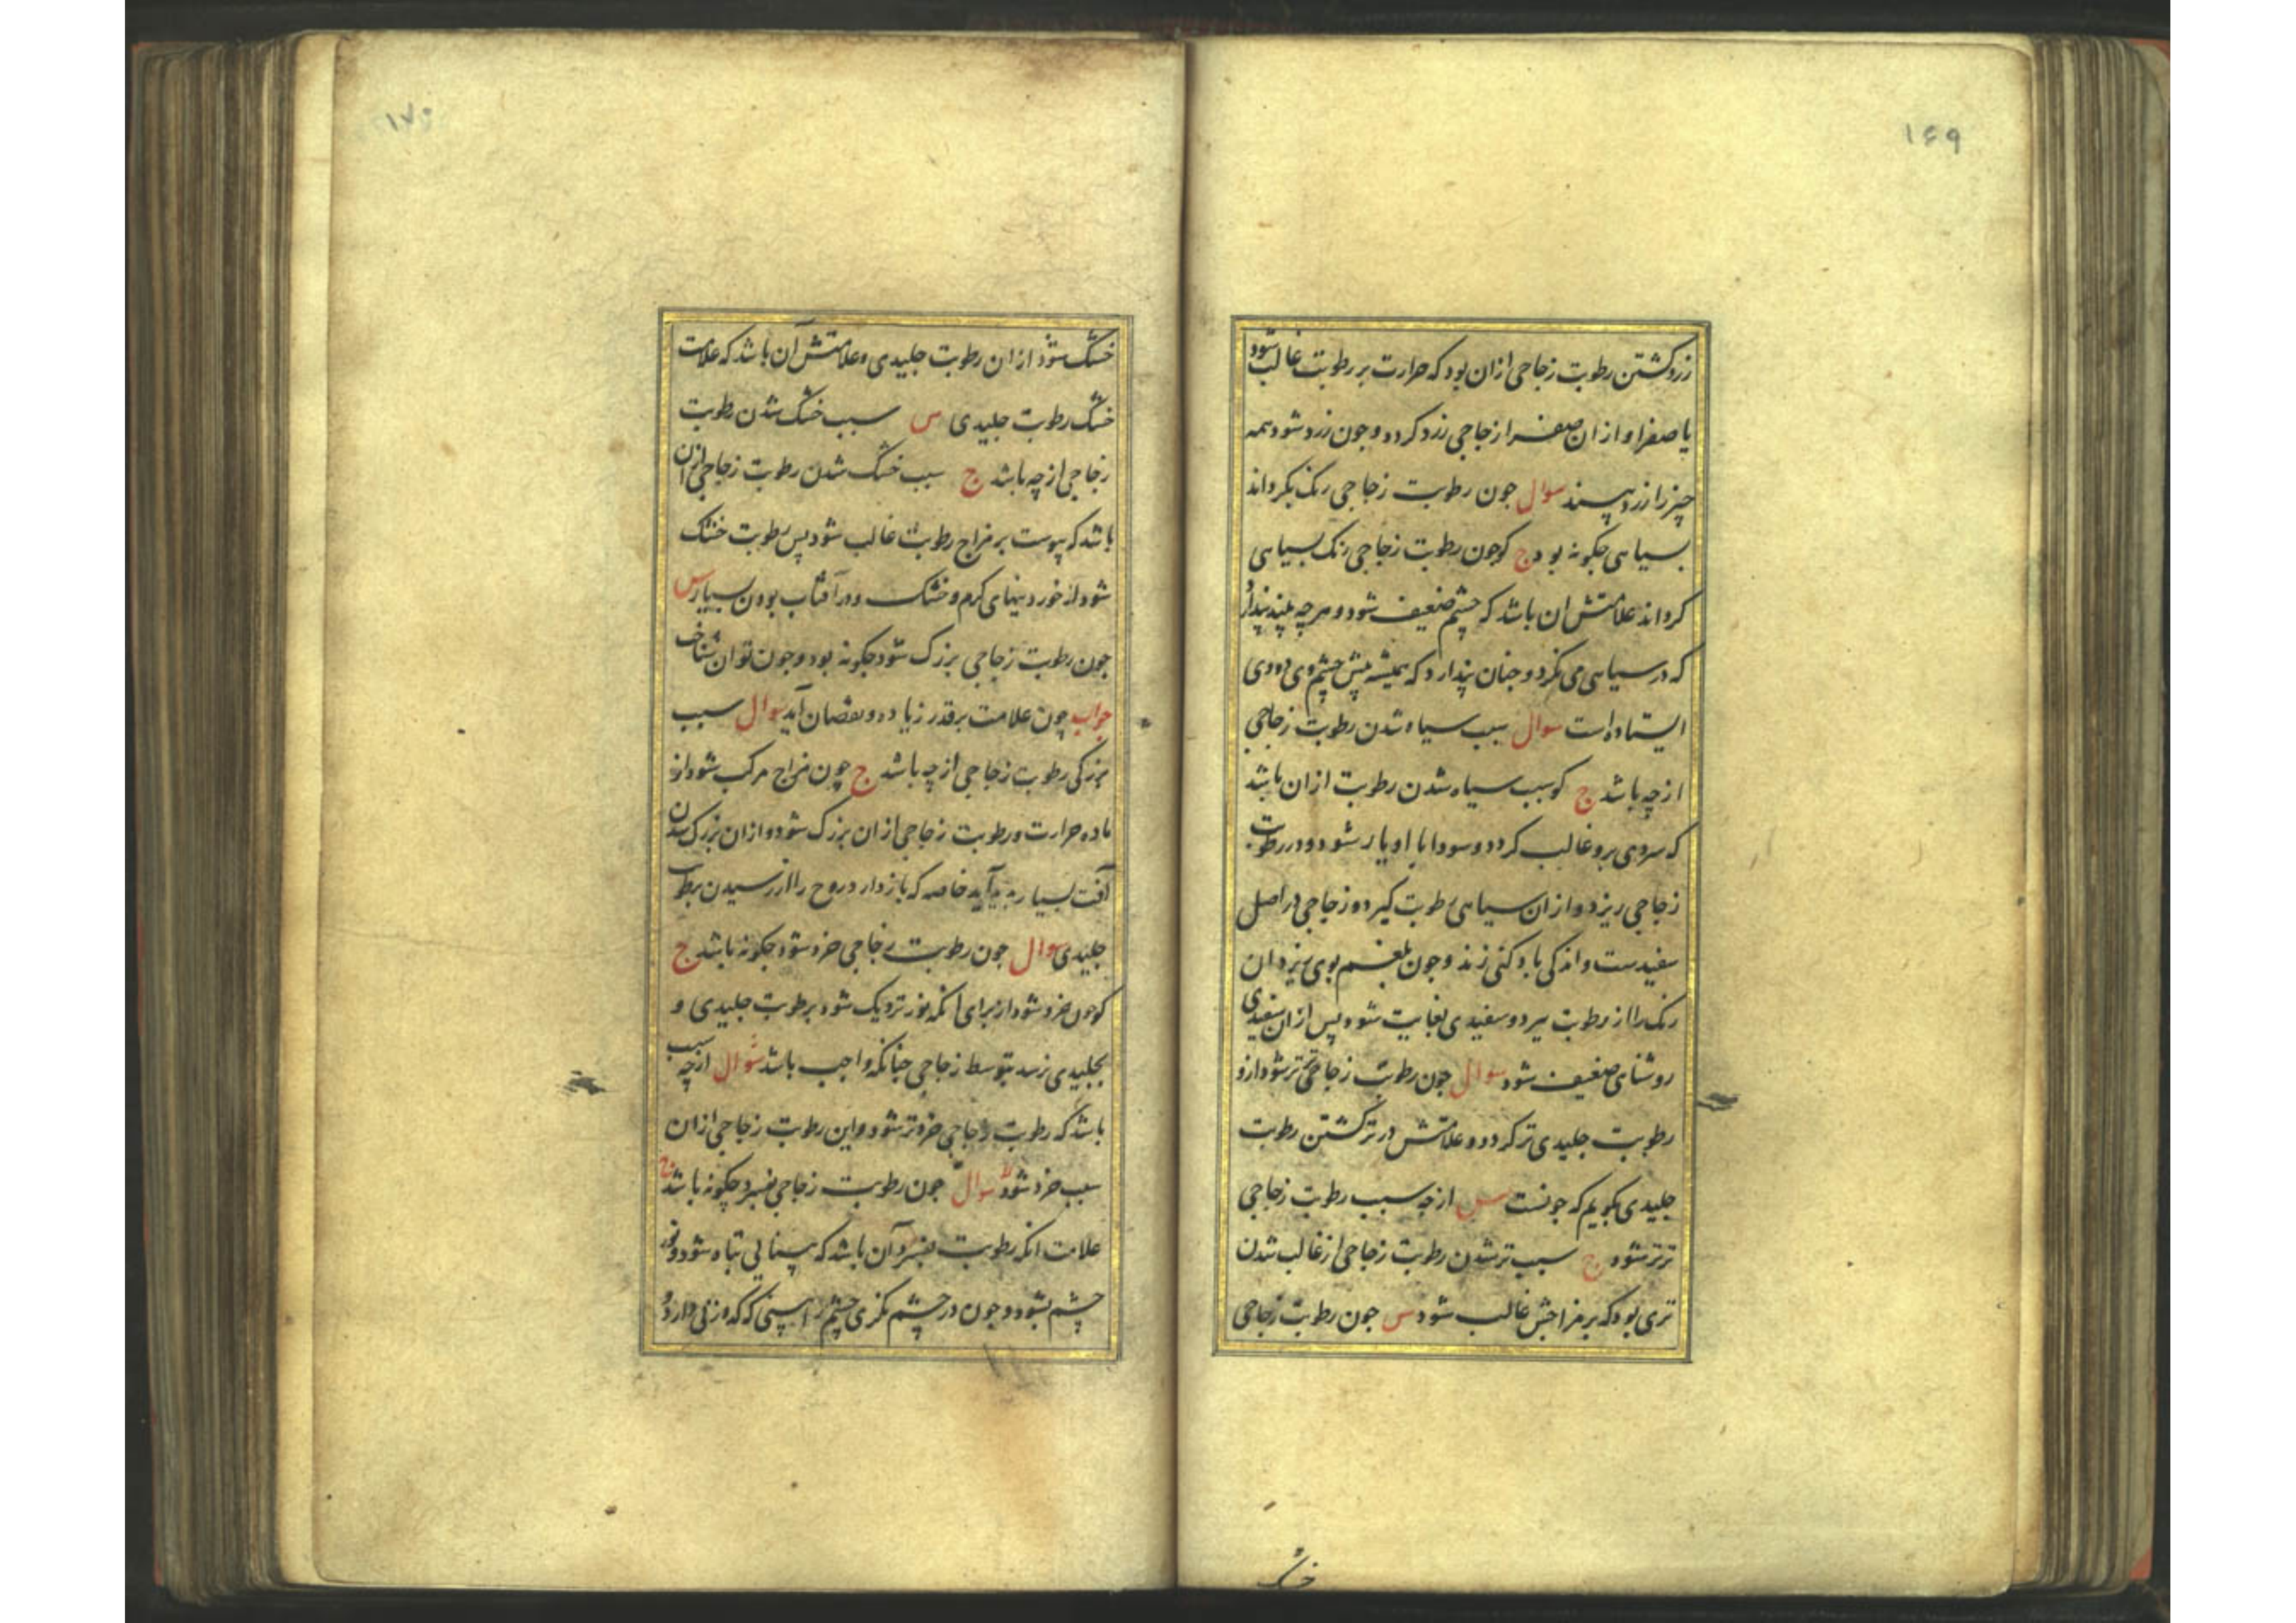 ۱۶۹
زرد کشتن رطوبت زجاجی ازان بود که حرارت بر رطوبت غالب شود
یا صفرا و ازان صفرا زجاجی زرد کردد و جون زرد شود همه
چیز را زرد بیند سوال جون رطوبت زجاجی رنک بکرداند
بسیاهی جکونه بود ج کو جون رطوبت زجاجی رنک بسیاهی
کرداند علامتش ان باشد که چشم ضعیف شود و هرچه بیند پندارد
که در سیاهی می نکرد و جنان پندارد که همیشه پیش چشم وی دودی
ایستاده است سوال سبب سیاه شدن رطوبت زجاجی
از چه باشد ج کو سبب سیاه شدن رطوبت ازان باشد
که سردی برو غالب کردد و سودا با او یار شود و در رطوبت
زجاجی ریزد و ازان سیاهی رطوبت کیرد و زجاجی در اصل
سفیدست و اندکی بازکتی زند و جون بلغم بوی ریزد ان
رنک را از رطوبت ببرد و سفیدی بغایت شود پس ازان سفیدی
روشنای ضعیف شود سوال جون رطوبت زجاجی تر شود ازو
رطوبت جلیدی تر کردد و علامتش در تر کشتن رطوبت
جلیدی بکویم که جونست س از چه سبب رطوبت زجاجی
تر تر شود ج سبب تر شدن رطوبت زجاجی از غالب شدن
تری بود که بر مزاجش غالب شود س جون رطوبت زجاجی
خشک
۱۷۰
خشک شود ازان رطوبت جلیدی و علامتش آن باشد که علامت
خشک رطوبت جلیدی س سبب خشک شدن رطوبت
زجاجی از چه باشد ج سبب خشک شدن رطوبت زجاجی ازان
باشد که یبوست بر مزاج رطوبت غالب شود پس رطوبت خشک
شود از خوردنیهای کرم و خشک و در آفتاب بودن بسیار س
جون رطوبت زجاجی بزرک شود جکونه بود و جون توان شناخت
جواب چون علامت برقدر زیاده و نقصان آید سوال سبب
بزرکی رطوبت زجاجی از چه باشد ج چون مزاج مرکب شود از
ماده حرارت و رطوبت زجاجی ازان بزرک شود و ازان بزرک شدن
آفت بسیار پدید آید خاصه که باز دارد روح را از رسیدن برطوبت
جلیدی سوال جون رطوبت زجاجی خرد شود جکونه باشد ج
کو جون خرد شود از برای انکه نور نزدیک شود برطوبت جلیدی و
بجلیدی نرسد بتوسط زجاجی جنانکه واجب باشد سوال از چه سبب
باشد که رطوبت زجاجی خردتر شود و این رطوبت زجاجی ازان
سبب خرد شود سوال جون رطوبت زجاجی بفسرد چکونه باشد ج
علامت انکه رطوبت بفسرد آن باشد که بینایی تباه شود و نور
چشم بشود و جون در چشم نکری چشم را بینی که کدورتی دارد و